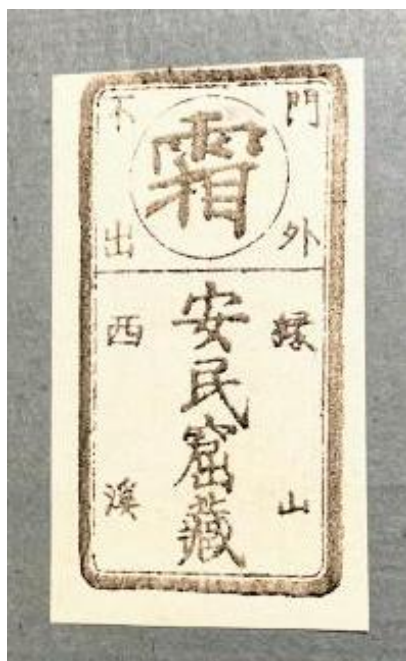 門外
霜
不出
縁山
安民窟蔵
西溪